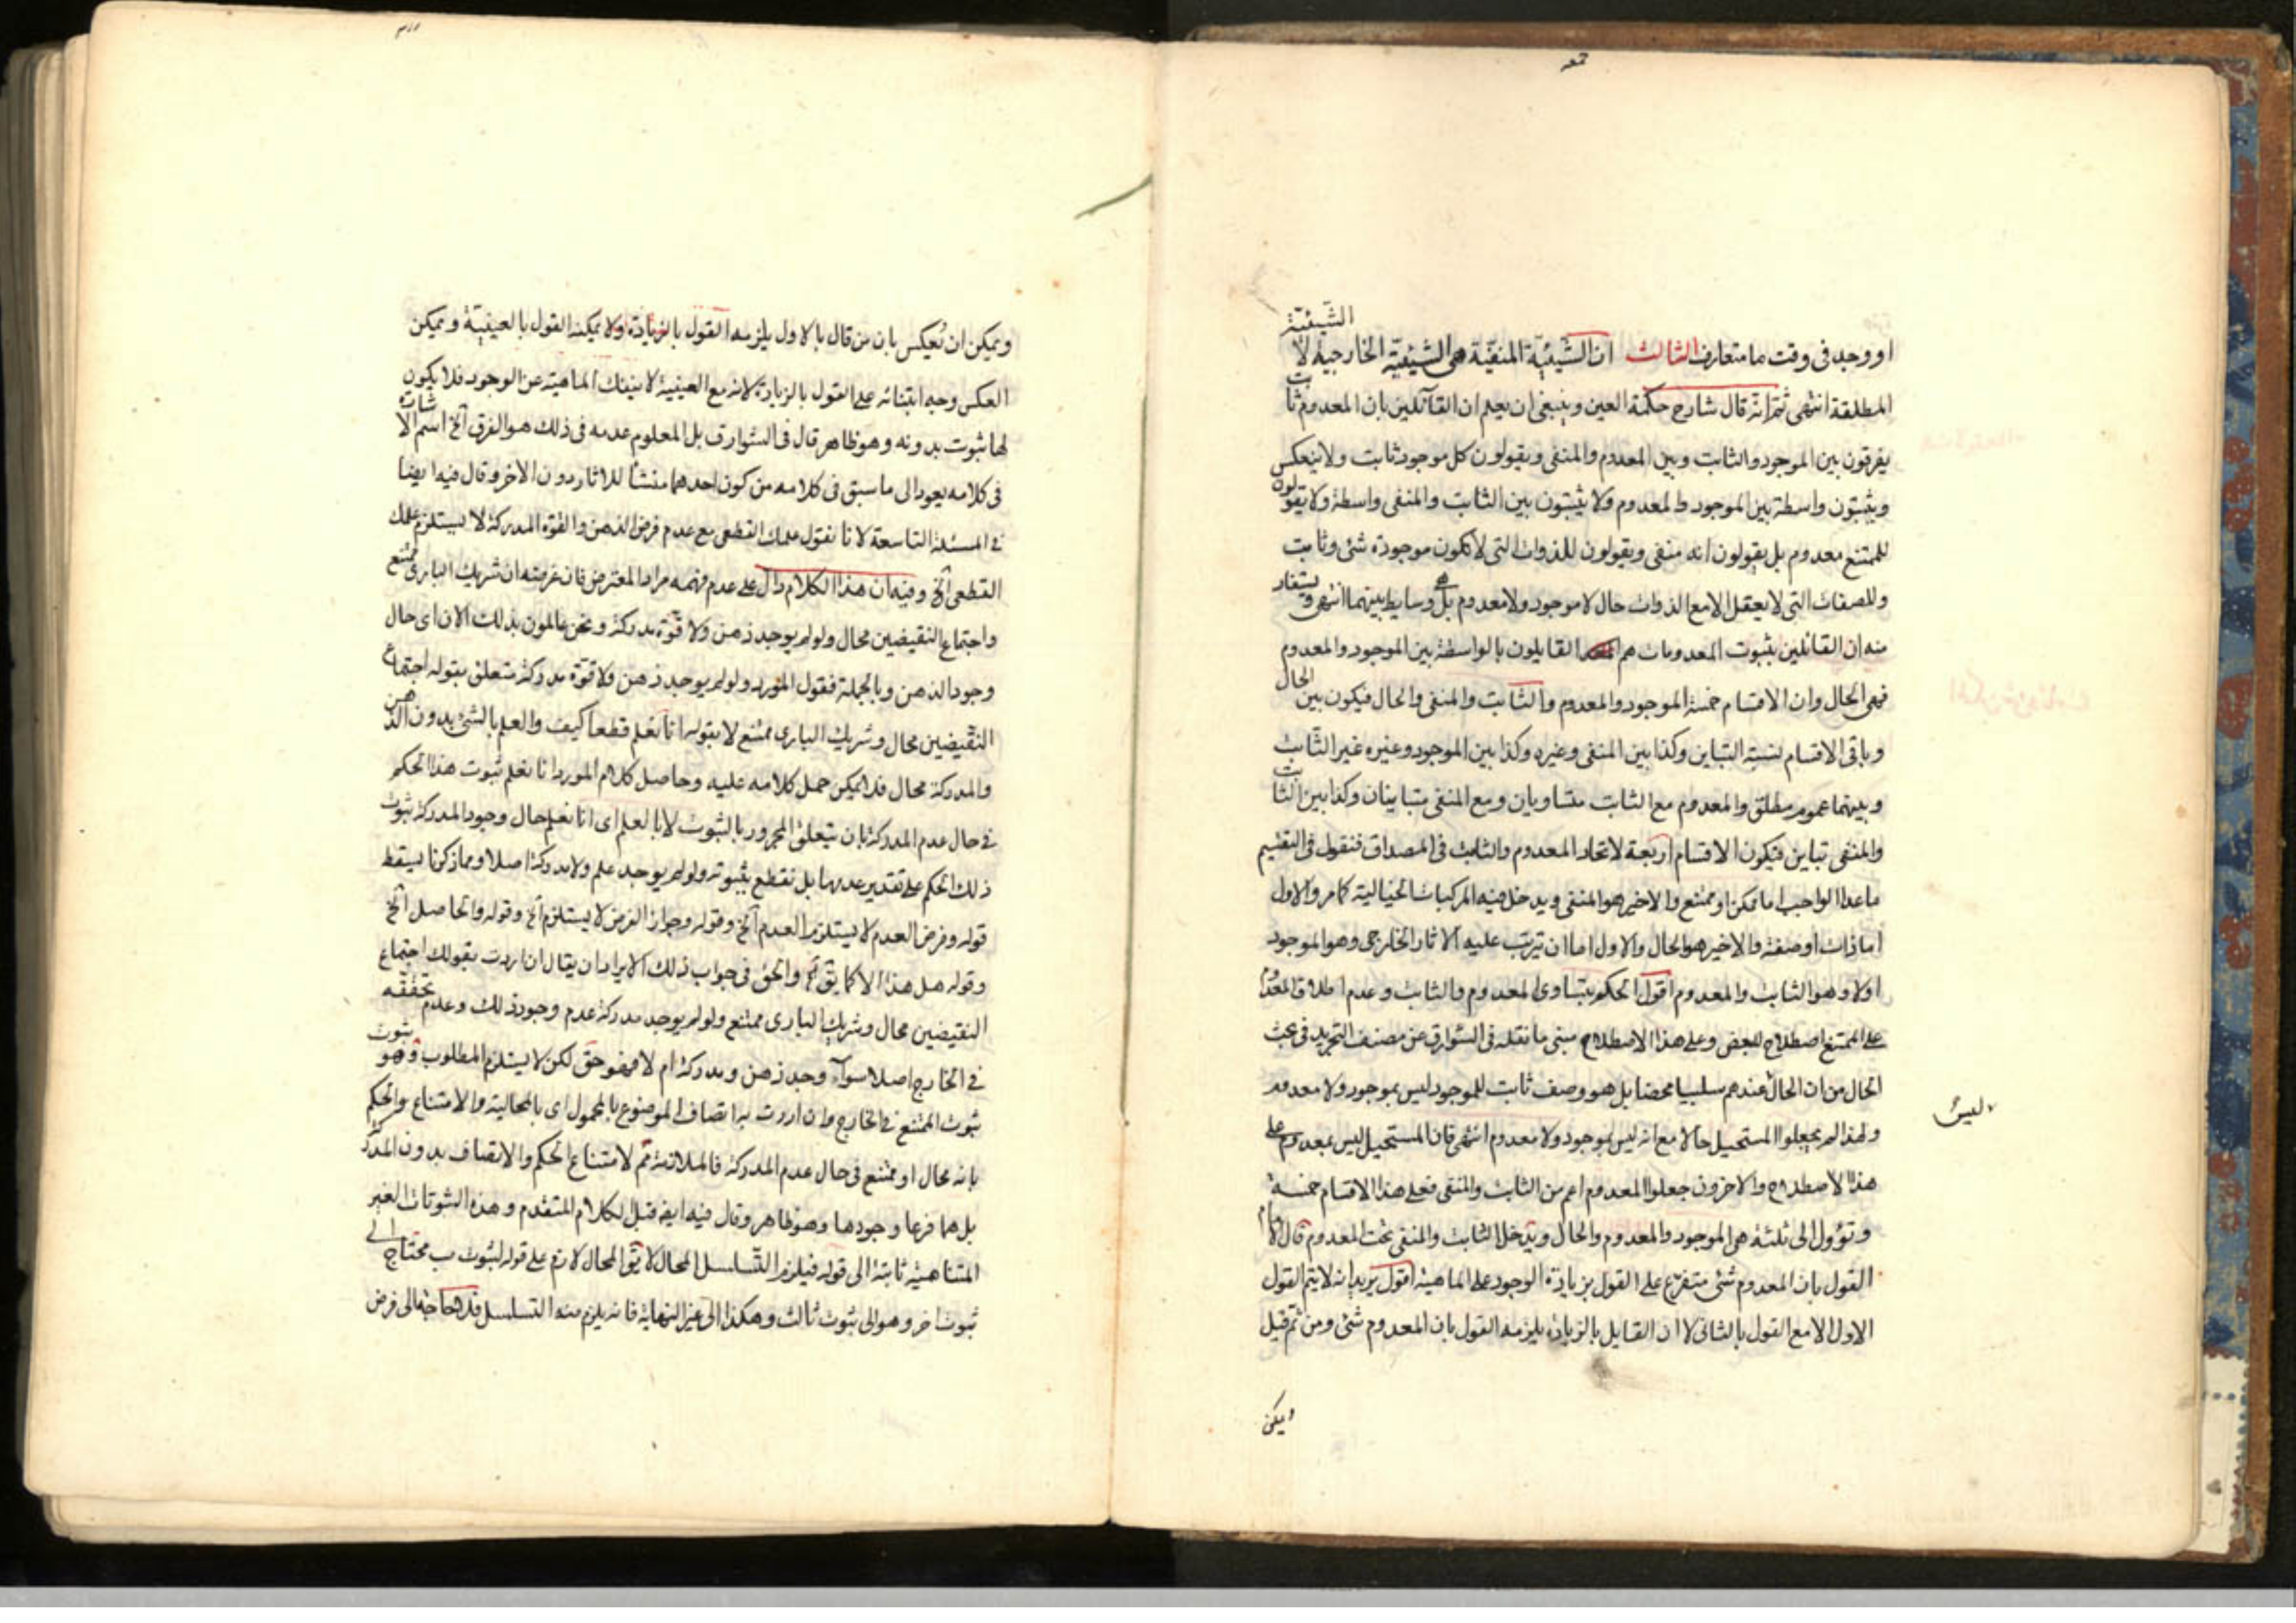 او وجد فى وقت ما متعارف الثالث ان الشيئية المنفية هى الشيئية الخارجية لا الشيئية
المطلقة انتهى ثم انه قال شارح حكمة العين وينبغى ان يعلم ان القائلين بان المعدوم ثابت
يفرقون بين الموجود والثابت وبين المعدوم والمنفى ويقولون كل موجود ثابت ولا ينعكس
ويثبتون واسطة بين الموجود والمعدوم ولا يثبتون بين الثابت والمنفى واسطة ولا يقولون
للممتنع معدوم بل يقولون انه منفى ويقولون للذوات التى لا تكون موجودة شئ وثابت
وللصفات التى لا يعقل الا مع الذوات حال لا موجود ولا معدوم بل هى وسايط بينهما انتهى ويستفاد
منه ان القائلين بثبوت المعدومات هم القايلون بالواسطة بين الموجود والمعدوم
فهى الحال وان الاقسام خمسة الموجود والمعدوم والثابت والمنفى والحال فيكون بين الحال
وباقى الاقسام نسبة التباين وكذا بين المنفى وغيره وكذا بين الموجود وغيره غير الثابت
وبينهما عموم مطلق والمعدوم مع الثابت متساويان ومع المنفى متباينان وكذا بين الثابت
والمنفى تباين فيكون الاقسام اربعة لاتحاد المعدوم والثابت فى المصداق فنقول فى التقسيم
ما عدا الواجب اما ممكن او ممتنع والاخير هو المنفى ويدخل فيه المركبات الخيالية كما مر والاول
اما ذات او صفة والاخير هو الحال والاول اما ان يترتب عليه الاثار الخارجى وهو الموجود
اولا وهو الثابت والمعدوم اقول الحكم بتساوى المعدوم والثابت وعدم اطلاق المعدوم
على الممتنع اصطلاح للبعض وعلى هذا الاصطلاح مبنى ما نقله فى الشوارق عن مصنف التجريد فى بحث
الحال من ان الحال عندهم سلبيا محضا بل هو وصف ثابت للموجود ليس بموجود ولا معدوم
ليس
ولهذا لم يجعلوا المستحيل حالا مع انه ليس بموجود ولا معدوم انتهى فان المستحيل ليس بمعدوم على
هذا الاصطلاح والاخرون جعلوا المعدوم اعم من الثابت والمنفى فعلى هذا الاقسام خمسة
وتؤول الى ثلثة هى الموجود والمعدوم والحال ويدخل الثابت والمنفى تحت المعدوم قال الامام
القول بان المعدوم شئ متفرع على القول بزيادة الوجود على الماهية اقول يريد انه لا يتم القول
الاول الا مع القول بالثانى لا ان القايل بالزيادة يلزمه القول بان المعدوم شئ ومن ثم قيل
ويمكن
ويمكن ان نعيكس بان من قال بالاول يلزمه القول بالزيادة ولا يمكنه القول بالعينية ويمكن
العكس وجه ابتنائه على القول بالزيادة لانه مع العينية لا ينفك الماهية عن الوجود فلا يكون
لها ثبوت بدونه وهو ظاهر قال فى الشوارق بل المعلوم عدمه فى ذلك هو الفرق آلخ اسم الاشارة
فى كلامه يعود الى ما سبق فى كلامه من كون احدهما منشأ للاثار دون الاخر وقال فيه ايضا
فى المسئلة التاسعة لانا نقول علمك القطعى مع عدم فرض الذهن والقوة المدركة لا يستلزم علمك
القطعى آلخ وفيه ان هذا الكلام دال على عدم فهمه مراد المعترض فان غرضه ان شريك البارى ممتنع
واجتماع النقيضين محال ولو لم يوجد ذهن ولا قوة مدركة ونحن عالمون بذلك الان اى حال
وجود الذهن وبالجملة فقول المورد ولو لم يوجد ذهن ولا قوة مدركة متعلق بقوله اجتماع
النقيضين محال وشريك البارى ممتنع لا بقوله انا نعلم قطعا كيف والعلم بالشئ بدون الذهن
والمدركة محال فلا يمكن حمل كلامه عليه وحاصل كلام المورد انا نعلم ثبوت هذا الحكم
فى حال عدم المدركة بان يتعلق المجرور بالثبوت لا بالعلم اى انا نعلم حال وجود المدركة ثبوت
ذلك الحكم على تقدير عدمها بل نقطع بثبوته ولو لم يوجد علم ولا مدركة اصلا ومما ذكرنا يسقط
قوله وفرض العدم لا يستلزم العدم آلخ وقوله وجواز الفرض لا يستلزم آلخ وقوله والحاصل آلخ
وقوله هل هذا الا كما يق والحق فى جواب ذلك الايراد ان يقال ان اردت بقولك اجتماع
النقيضين محال وشريك البارى ممتنع ولو لم يوجد مدركة عدم وجود ذلك وعدم تحققه
فى الخارج اصلا سواء وجد ذهن ومدركة ام لا فهو حق لكن لا يستلزم المطلوب وهو ثبوت
ثبوت الممتنع فى الخارج وان اردت به اتصاف الموضوع بالمحمول اى بالمحالية والامتناع والحكم
بانه محال او ممتنع فى حال عدم المدركة فالملازمة مم لامتناع الحكم والاتصاف بدون المدركة
بل هما فرعا وجودها وهو ظاهر وقال فيه ايضا قبل الكلام المتقدم وهذه الثبوتات الغير
المتناهية ثابتة الى قوله فيلزم التسلسل المحال لا يق المحال لازم على قوله لثبوت ب محتاج الى
ثبوت اخر وهو الى ثبوت ثالث وهكذا الى غير النهاية فانه يلزم منه التسلسل فلا حاجة الى فرض